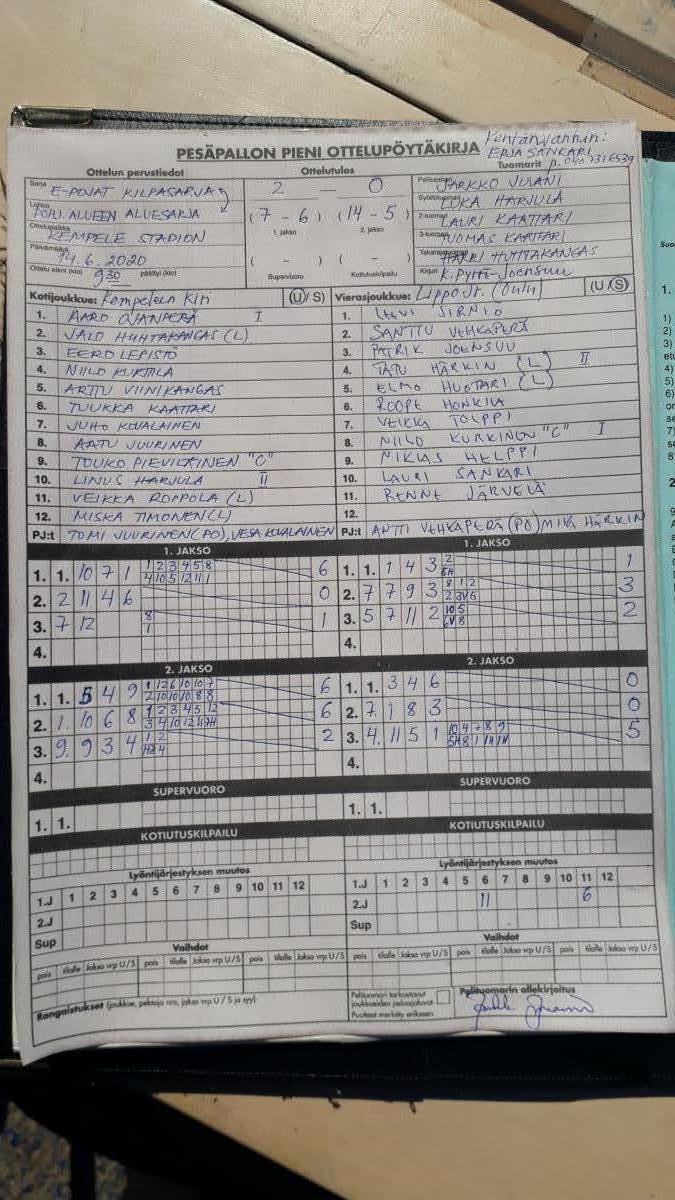 Kentänvanhin:
ERJA SANKARI
PESÄPALLON PIENI OTTELUPÖYTÄKIRJA
Ottelun perustiedot
Ottelutulos
Tuomarit p. 040 7316539
Sarja E-POJAT KILPASARJA
Lohko POHJ. ALUEEN ALUESARJA
Ottelupaikka KEMPELE STADION
Päivämäärä 14.6.2020
Ottelu alkoi (klo) 9.30 päättyi (klo)
2 — 0
(7 - 6) (14 - 5)
1. jakso 2. jakso
( - ) ( - )
Supervuoro Kotiutuskilpailu
Pelituomari JARKKO JULANI
Syöttötuomari LUKA HARJULA
2-tuomari LAURI KAATTARI
3-tuomari TUOMAS KAATTARI
Takarajatuomari HARRI HUHTAKANGAS
Kirjuri K. Pytti-Joensuu
Kotijoukkue: Kempeleen Kiri (U/S)
1. AARO OJANPERÄ I
2. JALO HUHTAKANGAS (L)
3. EERO LEPISTÖ
4. NIILO KUKTILA
5. ARTTU VIINIKANGAS
6. TUUKKA KAATTARI
7. JUHO KOVALAINEN
8. AATU JUURINEN
9. TOUKO PIEVILÄINEN "C"
10. LINUS HARJULA II
11. VEIKKA ROPPOLA (L)
12. MISKA TIMONEN (L)
PJ:t TOMI JUURINEN (PO), VESA KOVALAINEN
Vierasjoukkue: Lippo Jr. (Oulu) (U/S)
1. LEEVI SIRNIÖ
2. SANTTU VEHKAPERÄ
3. PATRIK JOENSUU
4. TATU HÄRKIN (L) II
5. ELMO HUOTARI (L)
6. ROOPE HONKILA
7. VEIKKA TOLPPI
8. NIILO KURKINEN "C" I
9. NIKLAS HELPPI
10. LAURI SANKARI
11. RENNE JÄRVELÄ
12.
PJ:t ANTTI VEHKAPERÄ (PO) MIKA HÄRKIN
1. JAKSO
1. 1. 10 7 1 1 2 3 4 5 8 6
4 10 5 12 11 1
2. 2 11 4 6 0
3. 7 12 8 1
1
4.
1. JAKSO
1. 1. 1 4 3 2 1
2. 7 7 9 3 8 1 2 3
3. 5 7 11 2 10 5 2
4.
2. JAKSO
1. 1. 5 4 9 1 12 6 10 10 7 6
2 10 10 10 8 8
2. 1. 10 6 8 1 2 3 4 5 12 6
3. 9. 9 3 4 1 2 2
4.
2. JAKSO
1. 1. 3 4 6 0
2. 7 1 8 3 0
3. 4. 11 5 1 10 4 7 8 9 5
4.
SUPERVUORO
1. 1.
SUPERVUORO
1. 1.
KOTIUTUSKILPAILU
KOTIUTUSKILPAILU
Lyöntijärjestyksen muutos
1.J 1 2 3 4 5 6 7 8 9 10 11 12
2.J
Sup
Lyöntijärjestyksen muutos
1.J 1 2 3 4 5 6 7 8 9 10 11 12
2.J 11 6
Sup
Vaihdot
pois tilalle Jakso vrp U/S pois tilalle Jakso vrp U/S pois tilalle Jakso vrp U/S
Vaihdot
pois tilalle Jakso vrp U/S pois tilalle Jakso vrp U/S pois tilalle Jakso vrp U/S
Rangaistukset (joukkue, pelaaja nro, jakso vrp U / S ja syy):
Pelituomari tarkastanut
joukkueiden pelaajaluvat
Puutteet merkitty erikseen
Pelituomarin allekirjoitus